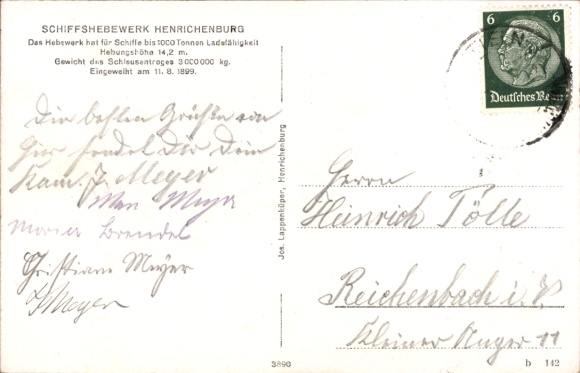 SCHIFFSHEBEWERK HENRICHENBURG
Das Hebewerk hat für Schiffe bis 1000 Tonnen Ladefähigkeit
Hebungshöhe 14,2 m.
Gewicht des Schleusentroges 3 000 000 kg.
Eingeweiht am 11. 8. 1899.
Die besten Grüße von
hier sendet Dir Dein
Kam. J. Meyer
Meyer
Brendel
Christiane Meyer
J Meyer
Jos. Lappenhüper, Henrichenburg
6 6
Deutsches Reich
Herrn
Heinrich Tölle
Reichenbach i. V.
Kleiner Anger 11
3890
b 142